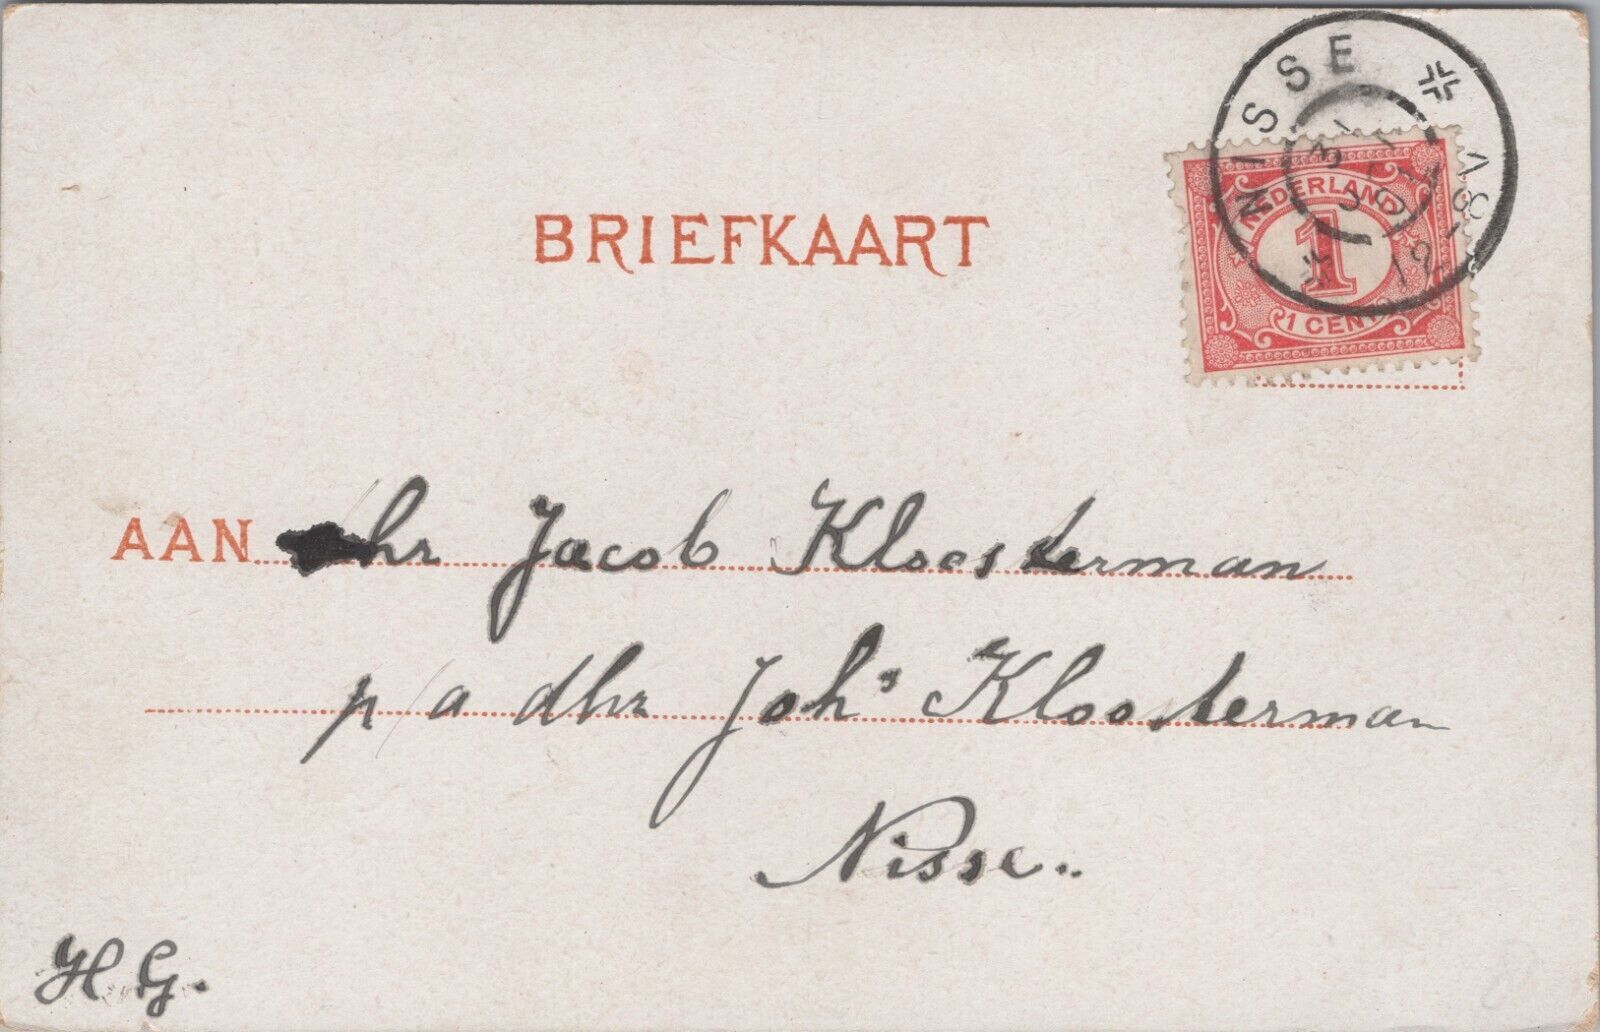 NISSE
NEDERLAND
1
1 CENT
BRIEFKAART
AAN dhr Jacob Kloosterman
p/a dhr Johs Kloosterman
Nisse..
H G.